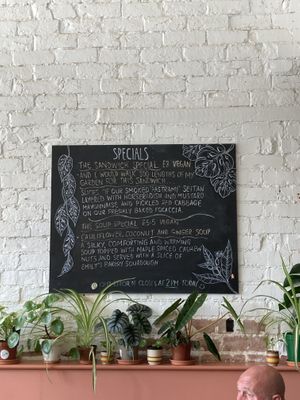 SPECIALS
THE SANDWICH SPECIAL £9 VEGAN
"AND I WOULD WALK 500 LENGTHS OF MY
GARDEN FOR THIS SANDWICH"
SLICES OF OUR SMOKED "PASTRAMI" SEITAN
LAYERED WITH HORSERADISH AND MUSTARD
MAYONNAISE AND PICKLED RED CABBAGE
ON OUR FRESHLY BAKED FOCACCIA.
THE SOUP SPECIAL £6.5 VEGAN
CAULIFLOWER, COCONUT AND GINGER SOUP
A SILKY, COMFORTING AND WARMING
SOUP TOPPED WITH MAPLE SPICED CASHEW
NUTS AND SERVED WITH A SLICE OF
EMILY'S BAKERY SOURDOUGH
OUR KITCHEN CLOSES AT 2PM TODAY